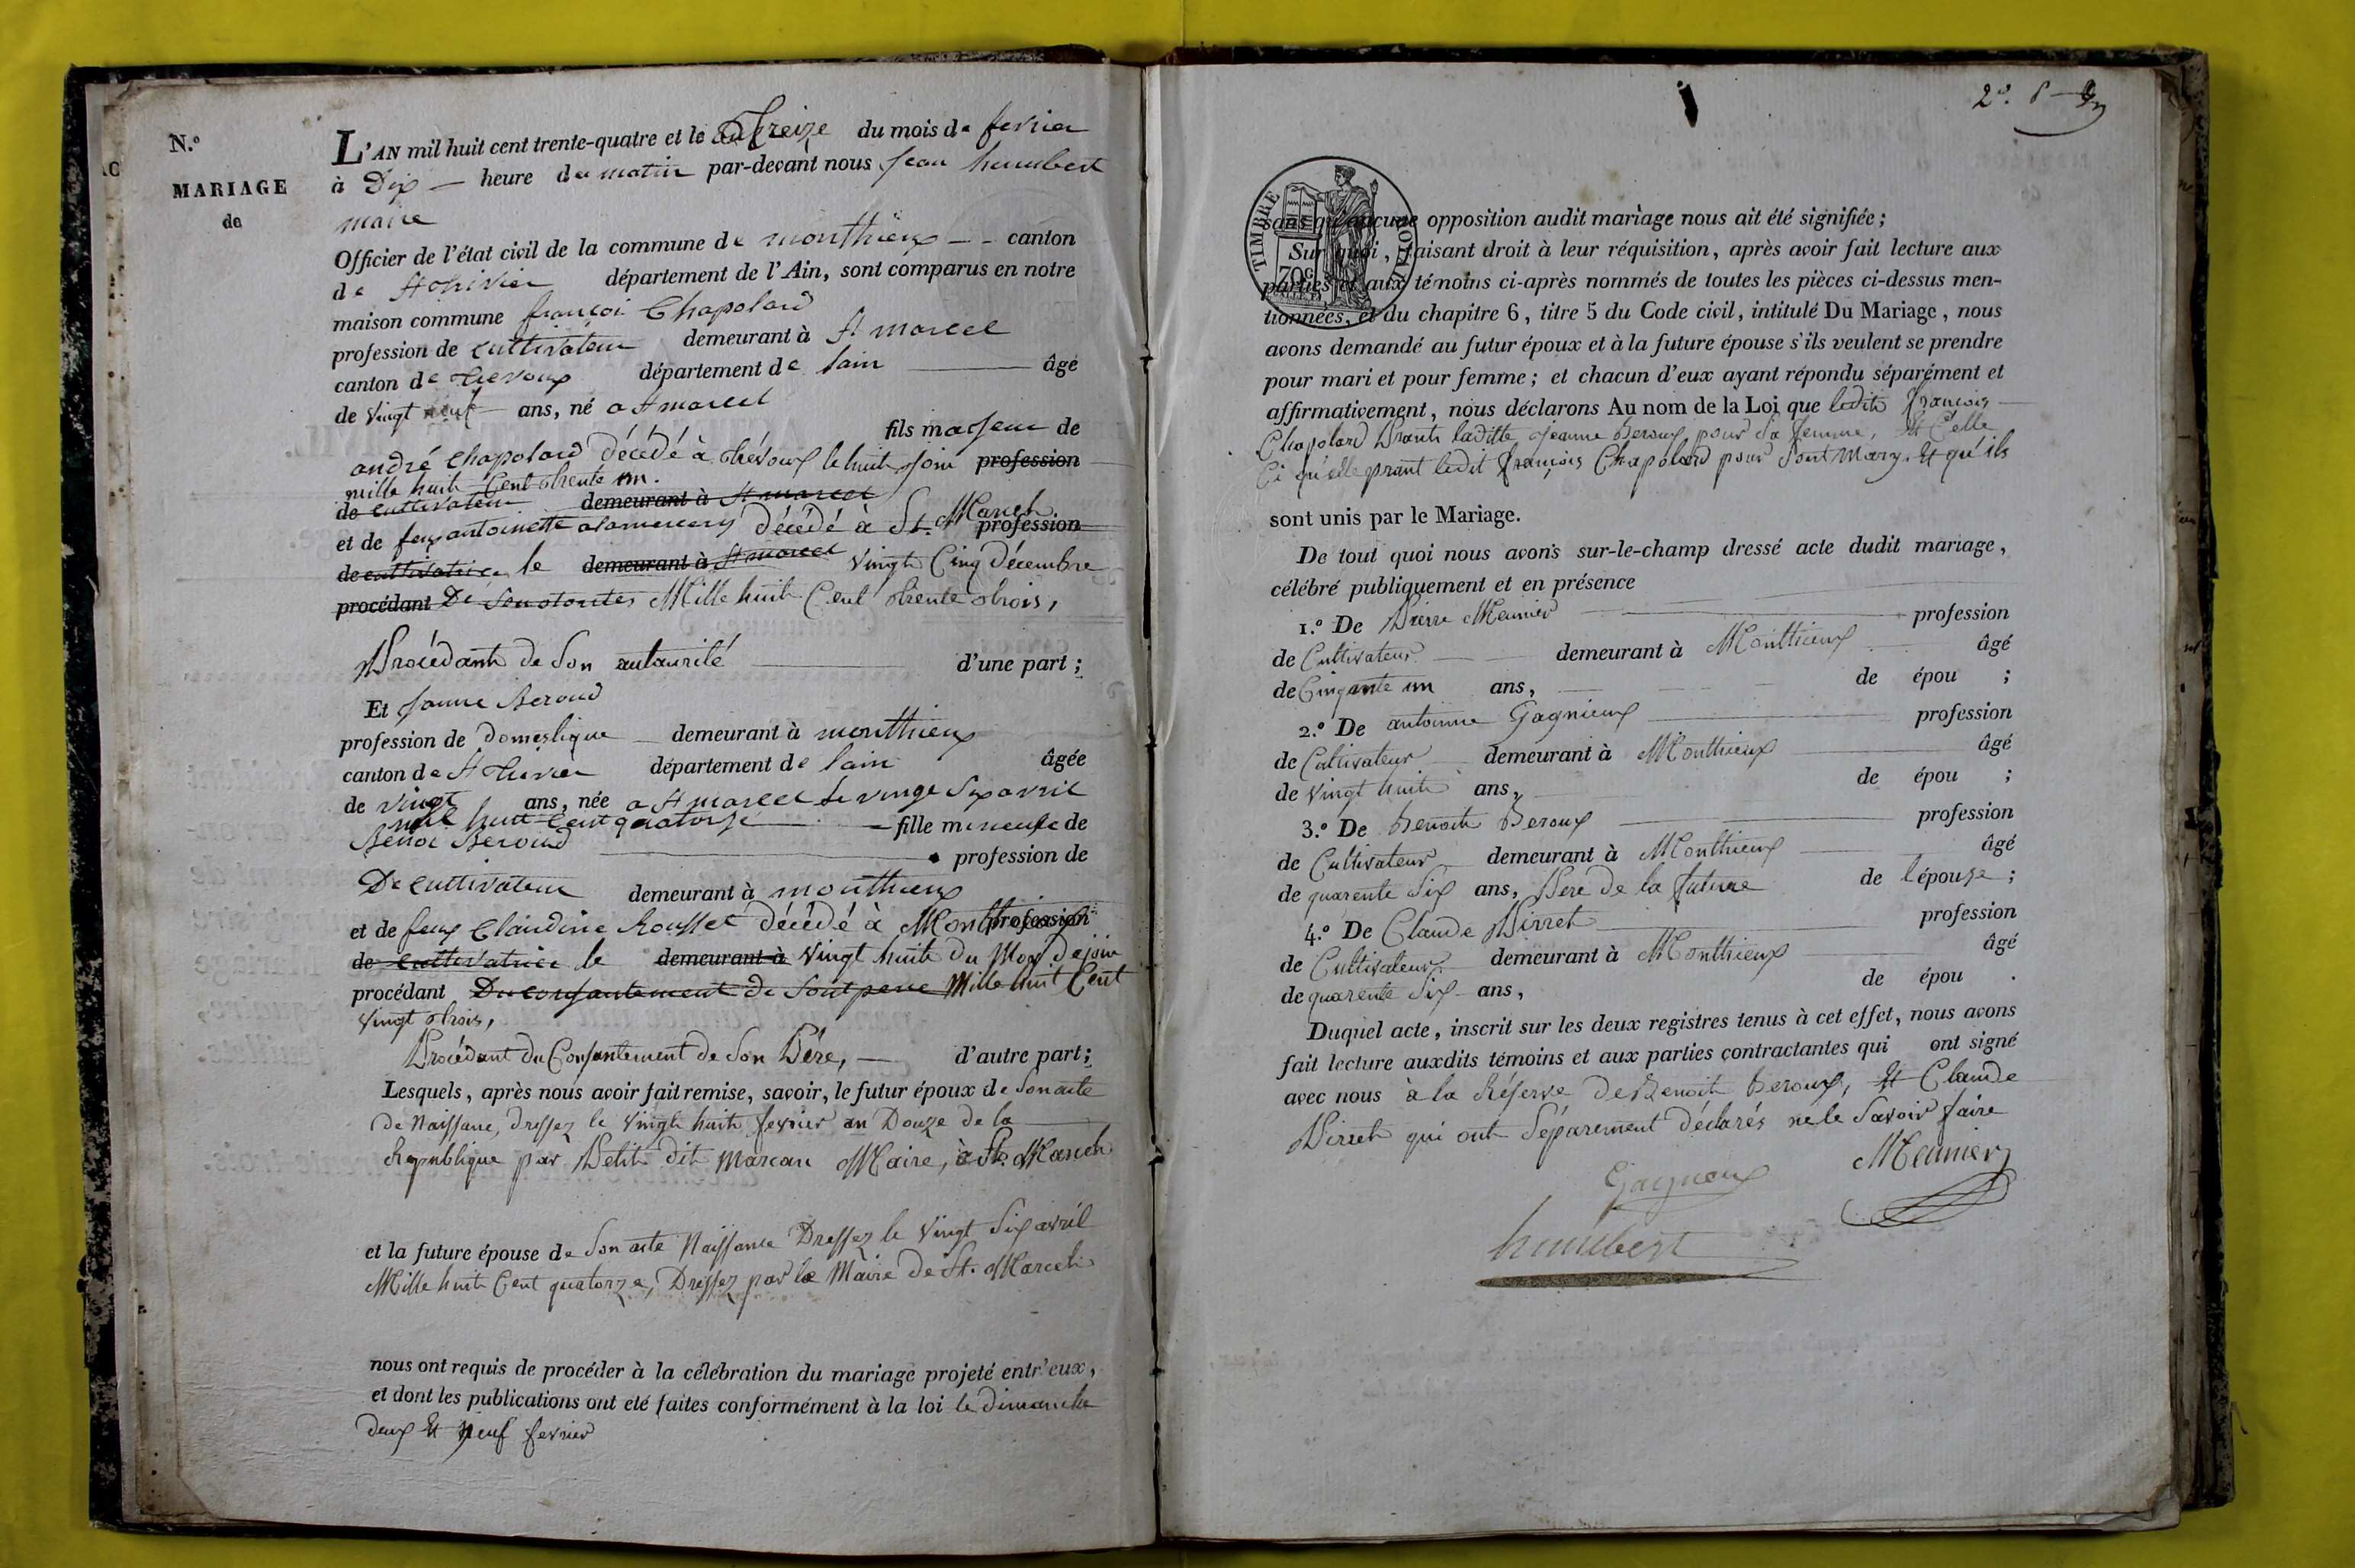 N.º
MARIAGE
de
L'AN mil huit cent trente-quatre et le Treize du mois de fevrier
à Dix — heure du matin par-devant nous Jean humbert
maire
Officier de l'état civil de la commune de monthieux — - canton
de St trivier département de l'Ain, sont comparus en notre
maison commune françoi Chapolard
profession de cultivateur demeurant à St marcel
canton de trevoux département de lain — âgé
de vingt neuf ans, né a St marcel
fils majeur de
andré Chapolard décédé à thévoux le huit join profession
mille huit Cent trente un.
de cultivateur demeurant à St marcel
et de feux antoinette décédé à St. Marcel. profession
de cultivatrice le demeurant à St marcel vingt Cinq décembre
procédant De Mille huit Cent trente trois,
Procédant de Son autaurité d'une part ;
Et Janne Beroud
profession de Domestique demeurant à monthieux
canton de St trivier département de lain âgée
de vingt ans, née a St marcel le vingt six avril
mil huit cent quatorze — fille mineuse de
Benoi Beroud profession de
De cultivateur demeurant à monthieux
et de feux Claudine Rousset décédé à Monthieux profession
de cultivatrice le demeurant à vingt huit du Moy de join
procédant Du consantement de sont pere Mille huit Cent
vingt trois,
Procédant du Consentement de Son Père, — d'autre part ;
Lesquels, après nous avoir fait remise, savoir, le futur époux de Son acte
de Naissance, dressez le vingt huit fevrier an Douze de la
Republique par Petit dit marcan Maire, à St. Marcel
et la future épouse de Son acte Naissance Dressez le vingt Six avril
Mille huit Cent quatorze, Dressez par le Maire de St. Marcel
nous ont requis de procéder à la célébration du mariage projeté entr'eux,
et dont les publications ont été faites conformément à la loi le dimanche
deux et neuf fevrier
TIMBRE ROYAL
70c
sans qu'aucune opposition audit mariage nous ait été signifiée ;
Sur quoi, faisant droit à leur réquisition, après avoir fait lecture aux
parties et aux témoins ci-après nommés de toutes les pièces ci-dessus men-
tionnées, et du chapitre 6, titre 5 du Code civil, intitulé Du Mariage, nous
avons demandé au futur époux et à la future épouse s'ils veulent se prendre
pour mari et pour femme ; et chacun d'eux ayant répondu séparément et
affirmativement, nous déclarons Au nom de la Loi que ledit François
Chapolard Prant laditte Jeanne Beroux pour Sa femme, Et Celle
Ci qu'elle prant ledit François Chapolard pour Sont Mary. Et qu'ils
sont unis par le Mariage.
De tout quoi nous avons sur-le-champ dressé acte dudit mariage,
célébré publiquement et en présence
1.º De Pierre Meunier profession
de Cultivateur demeurant à Monthieux âgé
de Cinqante un ans, de épou ;
2.º De antoinne Gagnieux profession
de Cultivateur demeurant à Monthieux âgé
de vingt huit ans, de épou ;
3.º De Benoit Beroux profession
de Cultivateur demeurant à Monthieux âgé
de quarente Six ans, Père de la future de l'épouse ;
4.º De Claude Pirret profession
de Cultivateur demeurant à Monthieux âgé
de quarente Six ans, de épou .
Duquel acte, inscrit sur les deux registres tenus à cet effet, nous avons
fait lecture auxdits témoins et aux parties contractantes qui ont signé
avec nous à la Réserve de Benoit Beroux, Et Claude
Pirret qui ont Séparement déclarés ne le Savoir faire
Gagneux Meunier
humbert